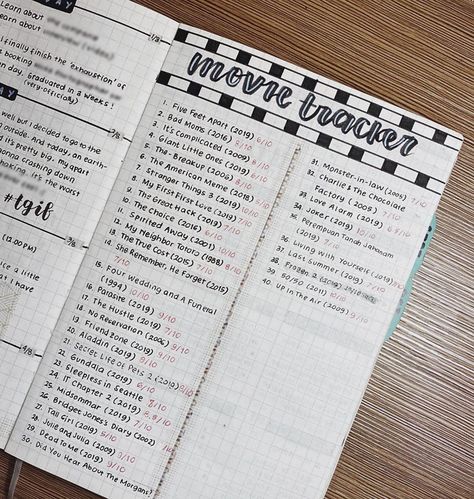 Learn about
Learn about
I finally finish the 'exhaustion' of
booking
an day. Graduated in 2 weeks!
(very-officially)
1/8
2/8
AY
well but I decided to go to the
outside. And today, an earth-
it's pretty big. my apart
crashing down
it's the worst
#tgif
3/8
(12.00PM)
ce a little
at I have
4/8
movie tracker
1. Five Feet Apart (2019) 6/10
2. Bad Moms (2016) 8/10
3. It's Complicated (2009)
4. Giant Little Ones (2019) 8/10
5. The -Breakup (2006) 6/10
6. The American Meme (2018)
7. Stranger Things 3 (2019) 10/10
8. My First First Love (2019)
9. The Great Hack (2019) 7/10
10. The Choice (2016) 6/10
11. Spirited Away (2001) 10/10
12. My Neighbor Totoro (1988) 8/10
13. The True Cost (2015) 7/10
14. She Remember, He Forget (2015)
7/10
15. Four Wedding and A Funeral
(1994) 10/10
16. Parasite (2019) 9/10
17. The Hustle (2019) 7/10
18. No Reservation (2006)
19. Friend Zone (2019)
20. Aladdin (2019) 9/10
21. Secret Life of Pets 2 (2019) 8/10
22. Gundala (2019) 6/10
23. Sleepless in Seattle 8/10
24. IT Chapter 2 (2019)
25. Midsommar (2019) 8,8/10
26. Bridget Jones's Diary (2002) 7/10
27. Tall Girl (2019) 5/10
28. Julie and Julia (2009)
29. Dead To Me (2019) 9/10
30. Did You Hear About The Morgans?
31. Monster-in-law (2005) 7/10
32. Charlie & The Chocolate
Factory (2005) 7/10
33. Love Alarm (2019) 6/10
34. Joker (2019) 10/10
35. Perempuan Tanah Jahanam
(2019) 7/10
36. Living with Yourself (2019)
37. Last Summer (2019) 7/10
38. Frozen 2 (2019)
39. 50/50 (2011) 10/10
40. Up In The Air (2009) 9/10